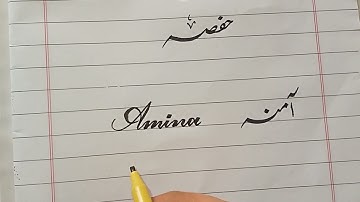 حفصہ
Amina آمنہ